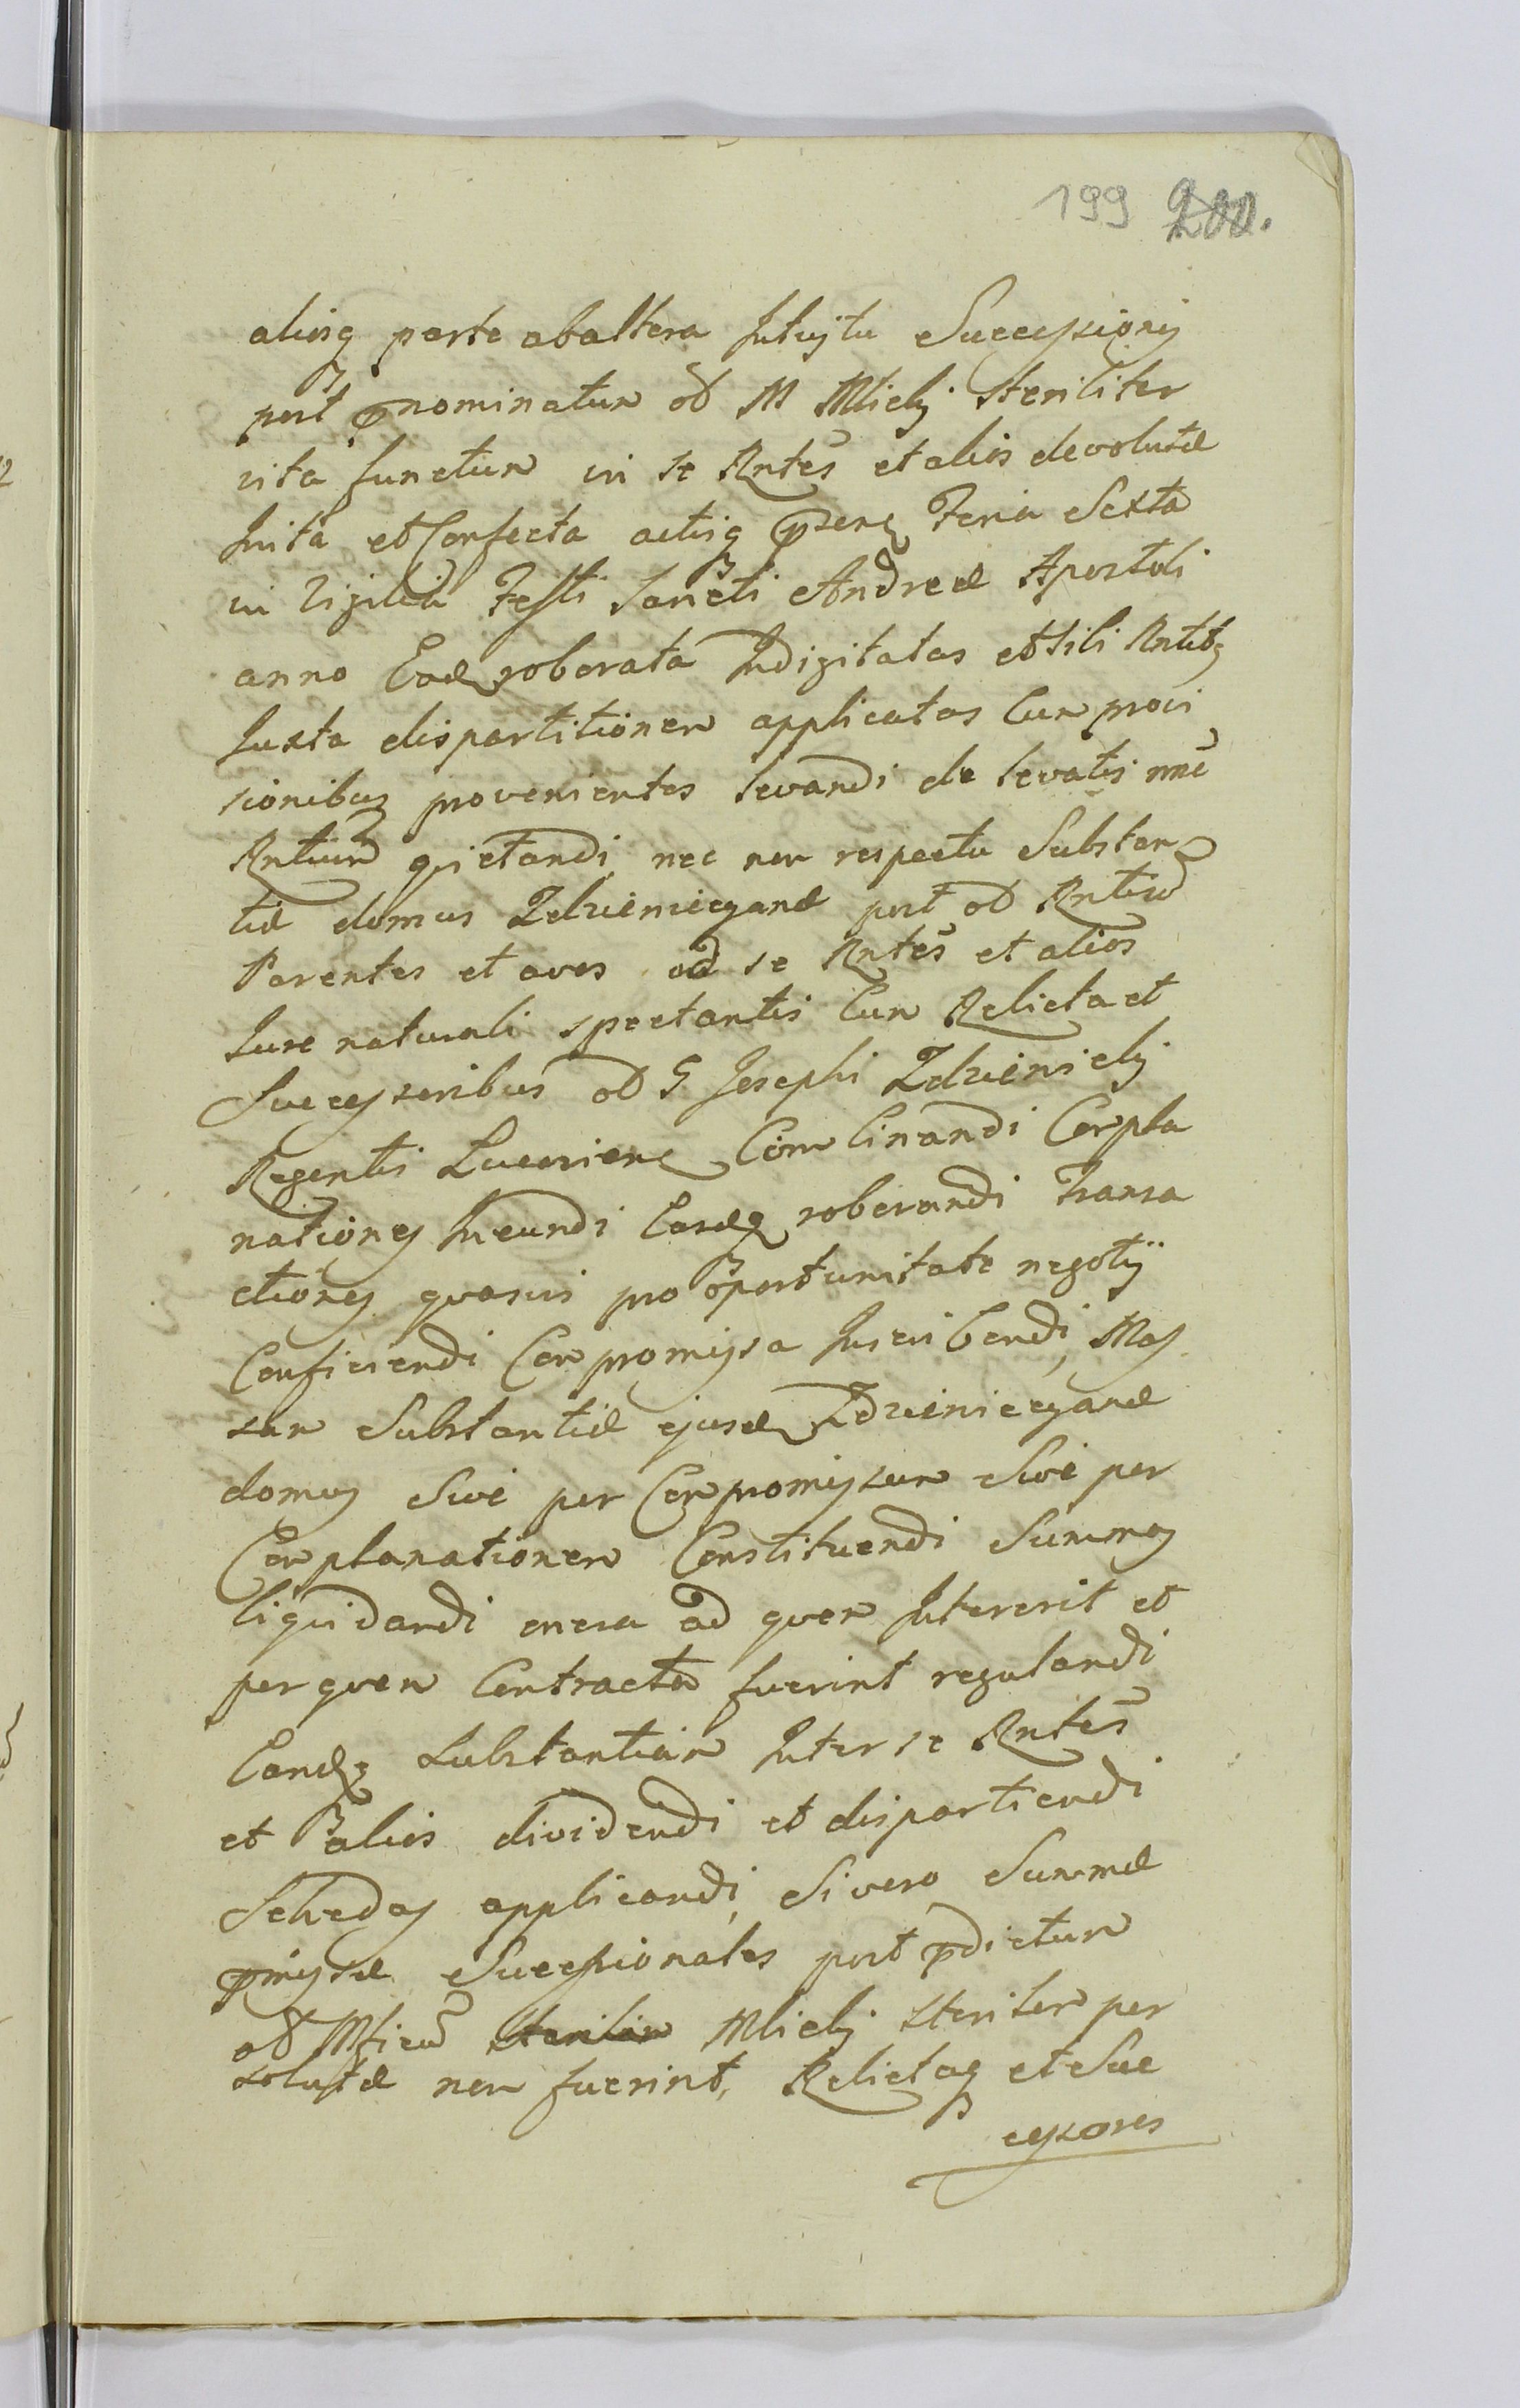 199 200.
aliisq parte ab altera Intuitu Successionis
post pnominatum od M Mlicky steriliter
vita functum in se Rntes et alios devolutæ
Inita et Confecta actisq psens Feria Sexta
in Vigilia Festi Sancti Andreæ Apostoli
anno Eod roborata Indigitatas et sibi Rntibq
Juxta dispartitionem applicatas Cum provi
sionibus provenientes levandi de levatis nnē
Rntium quietandi nec non respectu Substan
tiæ domus Zdzienicyanæ post od Rntium
Parentes et avos ad se Rntes et alios
Jure naturali spectantis Cum Relicta et
Successoribus od G Josephi Zdzienicky
Regentis Luceoriens Combinandi Compla
nationes Ineundi Easdq roborandi Transa
ctiones quasvis pro oportunitate negotij
Conficiendi Compromissa Inscribendi, Mas
sam Substantiæ ejusd Zdzienicyanæ
domus Sive per Compromissum Sive per
Complanationem Constituendi Summas
liquidandi onera ad quem Intererit et
per quem Contracta fuerint regulandi
Eandq Substantiam Inter se Rntes
et alios dividendi et dispartiendi
Schedas applicandi, Si vero Summæ
pmissæ Successionales post pdictum
od Mficum Mlicky sterilem per
solutæ non fuerint, Relictaq et Suc
cessores